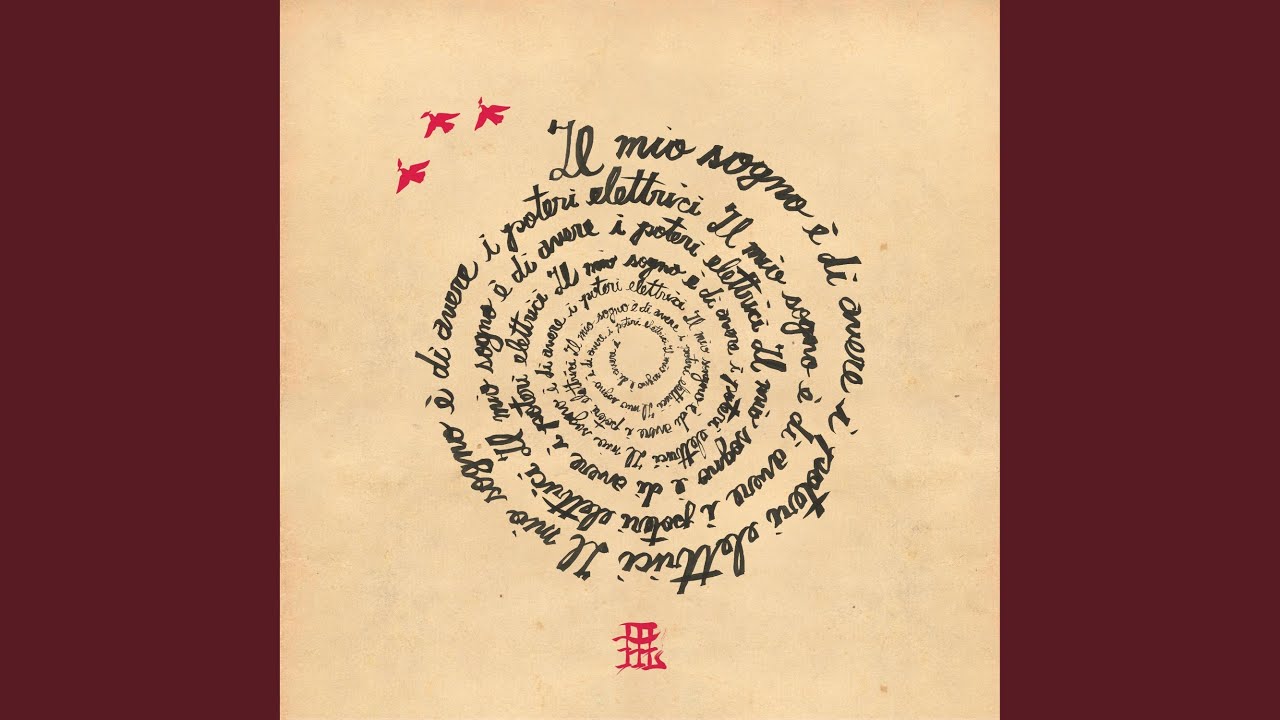 Il mio sogno è di avere i poteri elettrici
Il mio sogno è di avere i poteri elettrici
Il mio sogno è di avere i poteri elettrici
Il mio sogno è di avere i poteri elettrici
Il mio sogno è di avere i poteri elettrici
Il mio sogno è di avere i poteri elettrici
Il mio sogno è di avere i poteri elettrici
Il mio sogno è di avere i poteri elettrici
Il mio sogno è di avere i poteri elettrici
Il mio sogno è di avere i poteri elettrici
Il mio sogno è di avere i